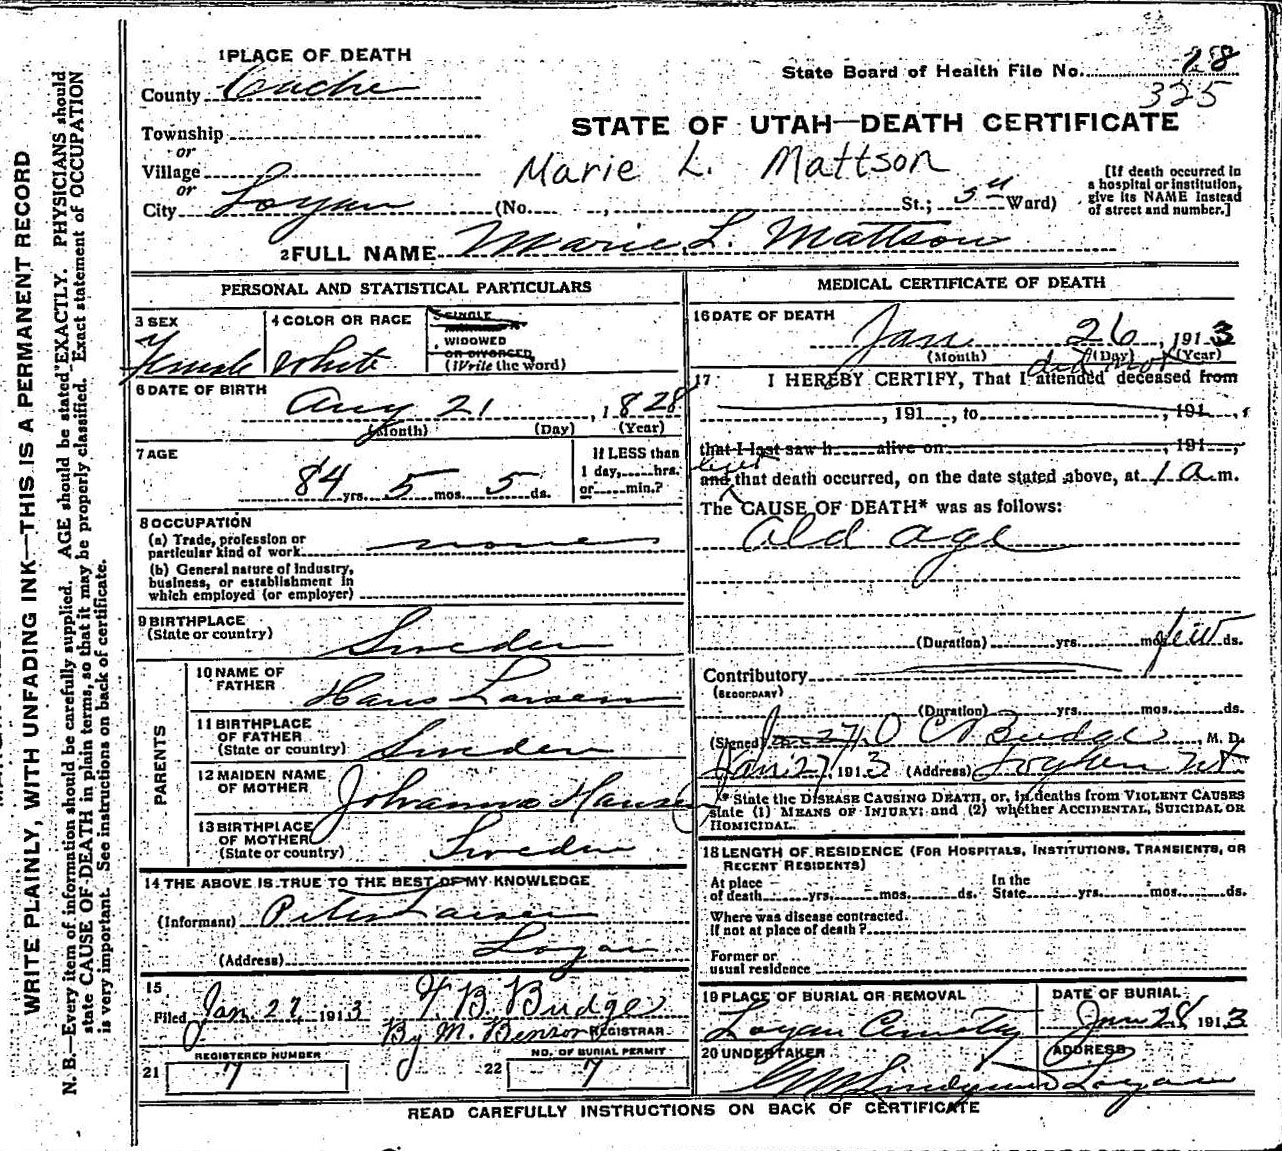 1 PLACE OF DEATH
County Cache
State Board of Health File No. 28
325
Township
or
Village
or
City Logan (No. , St.; 5th Ward)
STATE OF UTAH—DEATH CERTIFICATE
Marie L. Mattson
[If death occurred in
a hospital or institution,
give its NAME instead
of street and number.]
2 FULL NAME Marie L. Mattson
PERSONAL AND STATISTICAL PARTICULARS
3 SEX
Female
4 COLOR OR RACE
White
5 SINGLE
WIDOWED
OR DIVORCED
(Write the word)
6 DATE OF BIRTH
Aug 21, 1828
(Month) (Day) (Year)
7 AGE
84 yrs. 5 mos. 5 ds.
If LESS than
1 day, hrs.
or min.?
8 OCCUPATION
(a) Trade, profession or
particular kind of work none
(b) General nature of Industry,
business, or establishment in
which employed (or employer)
9 BIRTHPLACE
(State or country) Sweden
PARENTS
10 NAME OF
FATHER Hans Larsen
11 BIRTHPLACE
OF FATHER
(State or country) Sweden
12 MAIDEN NAME
OF MOTHER Johanna Hansen
13 BIRTHPLACE
OF MOTHER
(State or country) Sweden
14 THE ABOVE IS TRUE TO THE BEST OF MY KNOWLEDGE
(Informant) Peter Larsen
(Address) Logan
15
Filed Jan. 27, 1913 T. B. Budge
By M. Benson REGISTRAR
REGISTERED NUMBER
21 7
NO. OF BURIAL PERMIT
22 7
MEDICAL CERTIFICATE OF DEATH
16 DATE OF DEATH
Jan 26, 1913
(Month) (Day) (Year)
did not
17 I HEREBY CERTIFY, That I attended deceased from
, 191 , to , 191 ,
that I last saw h alive on , 191 ,
and that death occurred, on the date stated above, at 1 a m.
The CAUSE OF DEATH* was as follows:
Old age
(Duration) yrs. mos. few ds.
Contributory
(SECONDARY)
(Duration) yrs. mos. ds.
(Signed) Jan 27/ O C Budge, M. D.
Jan 27/ 1913 (Address) Logan Ut.
* State the DISEASE CAUSING DEATH, or, in deaths from VIOLENT CAUSES
state (1) MEANS OF INJURY; and (2) whether ACCIDENTAL, SUICIDAL OR
HOMICIDAL.
18 LENGTH OF RESIDENCE (FOR HOSPITALS, INSTITUTIONS, TRANSIENTS, OR
RECENT RESIDENTS)
At place
of death yrs. mos. ds.
In the
State yrs. mos. ds.
Where was disease contracted
if not at place of death?
Former or
usual residence
19 PLACE OF BURIAL OR REMOVAL
Logan Cemetery
DATE OF BURIAL
Jan 28 1913
20 UNDERTAKER
Lindquist
ADDRESS
Logan
READ CAREFULLY INSTRUCTIONS ON BACK OF CERTIFICATE
WRITE PLAINLY, WITH UNFADING INK—THIS IS A PERMANENT RECORD
N. B.—Every item of information should be carefully supplied. AGE should be stated EXACTLY. PHYSICIANS should
state CAUSE OF DEATH in plain terms, so that it may be properly classified. Exact statement of OCCUPATION
is very important. See instructions on back of certificate.